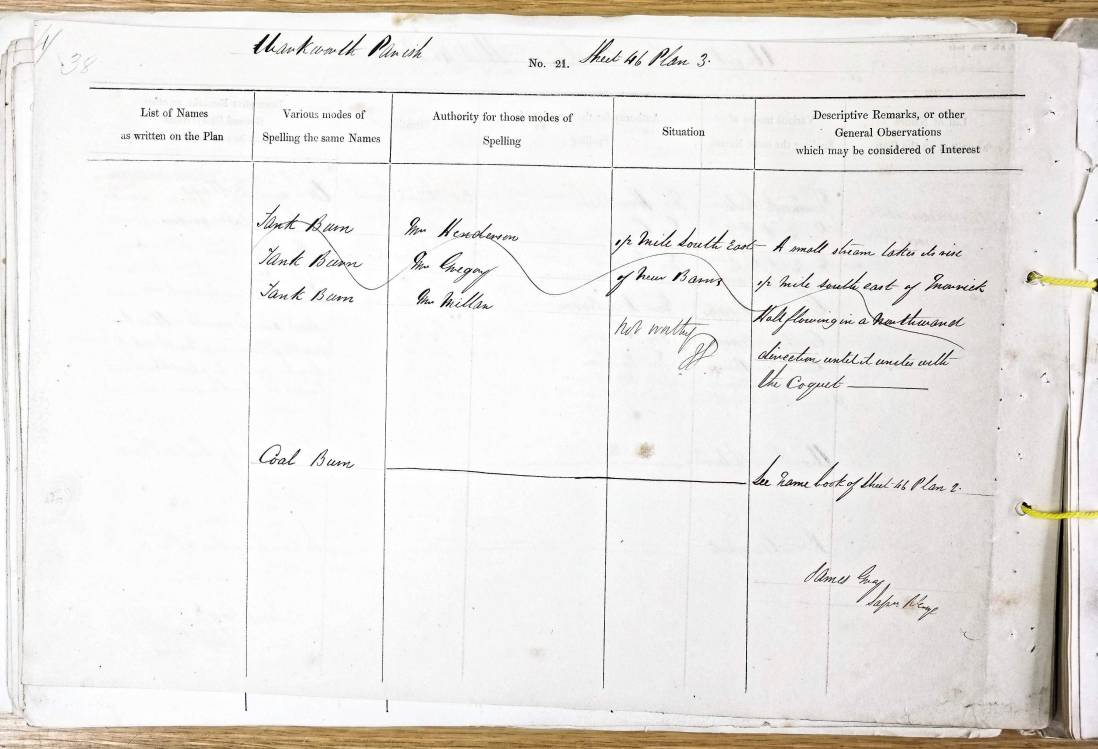 38
Warkworth Parish
No. 21. Sheet 46 Plan 3.
List of Names
as written on the Plan
Various modes of
Spelling the same Names
Authority for those modes of
Spelling
Situation
Descriptive Remarks, or other
General Observations
which may be considered of Interest
Tank Burn
Tank Burn
Tank Burn
Mr Henderson
Mr Gregory
Mr Millan
mile South East
of New Barns
not worthy
A small stream takes its rise
mile south east of Morwick
Hall flowing in a Northward
direction until it unites with
the Coquet
Coal Burn
See name book of Sheet 46 Plan 2.
James Gray
Sapr R. Eng